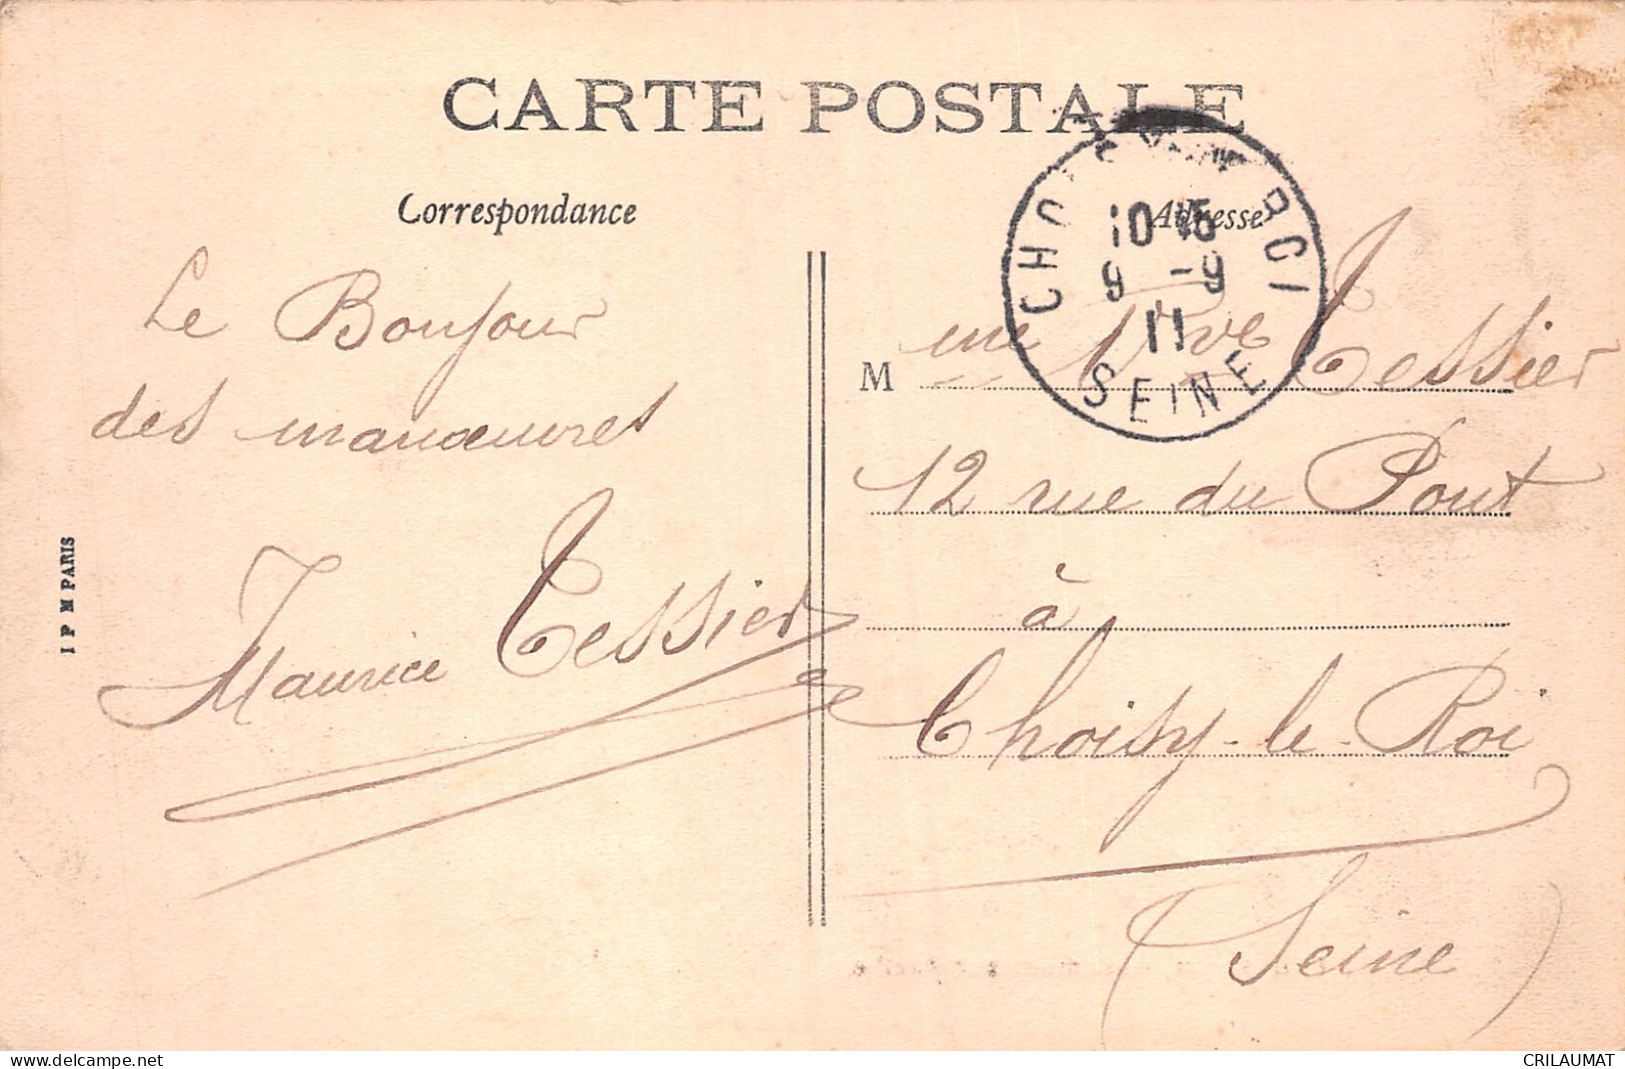 CARTE POSTALE
Correspondance
Adresse
CHOISY LE ROI
10 15
9 -9
11
SEINE
Le Bonjour
des manœuvres
Maurice Tessier
I P M PARIS
Mme Vve Tessier
12 rue du Pont
à
Choisy-le-Roi
(Seine)
www.delcampe.net
CRILAUMAT